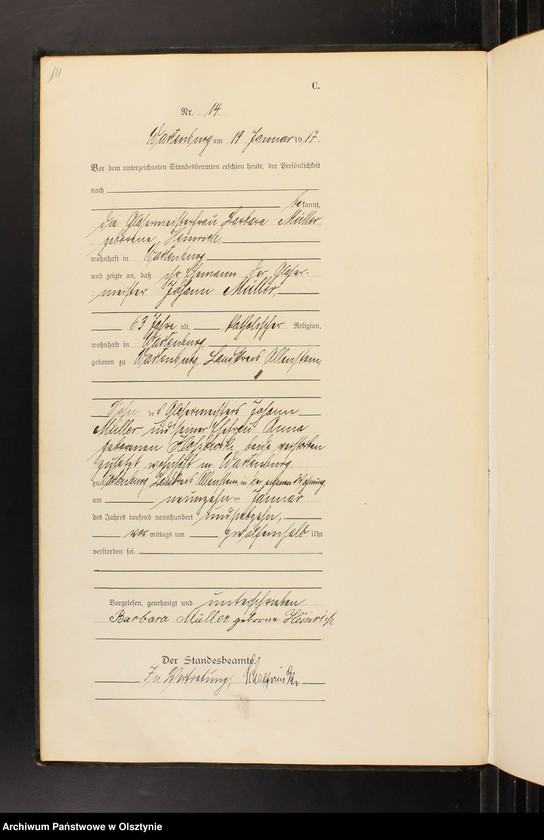 14
C.
Nr. 14.
Wartenburg am 19 Januar 1917.
Vor dem unterzeichneten Standesbeamten erschien heute, der Persönlichkeit
nach
bekannt,
die Glasermeisterfrau Barbara Müller
geborene Heinrich
wohnhaft in Wartenburg
und zeigte an, daß ihr Ehemann der Glaser-
meister Johann Müller,
63 Jahre alt, katholischer Religion,
wohnhaft in Wartenburg
geboren zu Wartenburg Landkreis Allenstein,
Sohn des Glasermeisters Johann
Müller und seiner Ehefrau Anna
geborenen beide verstorben
zuletzt wohnhaft in Wartenburg
zu Wartenburg, Landkreis Allenstein, in der Wohnung,
am neunzehnten Januar
des Jahres tausend neunhundert undsiebzehn,
vor mittags um Uhr
verstorben sei.
Vorgelesen, genehmigt und unterschrieben
Barbara Müller geborne Heinrich
Der Standesbeamte
In Vertretung,
Archiwum Państwowe w Olsztynie